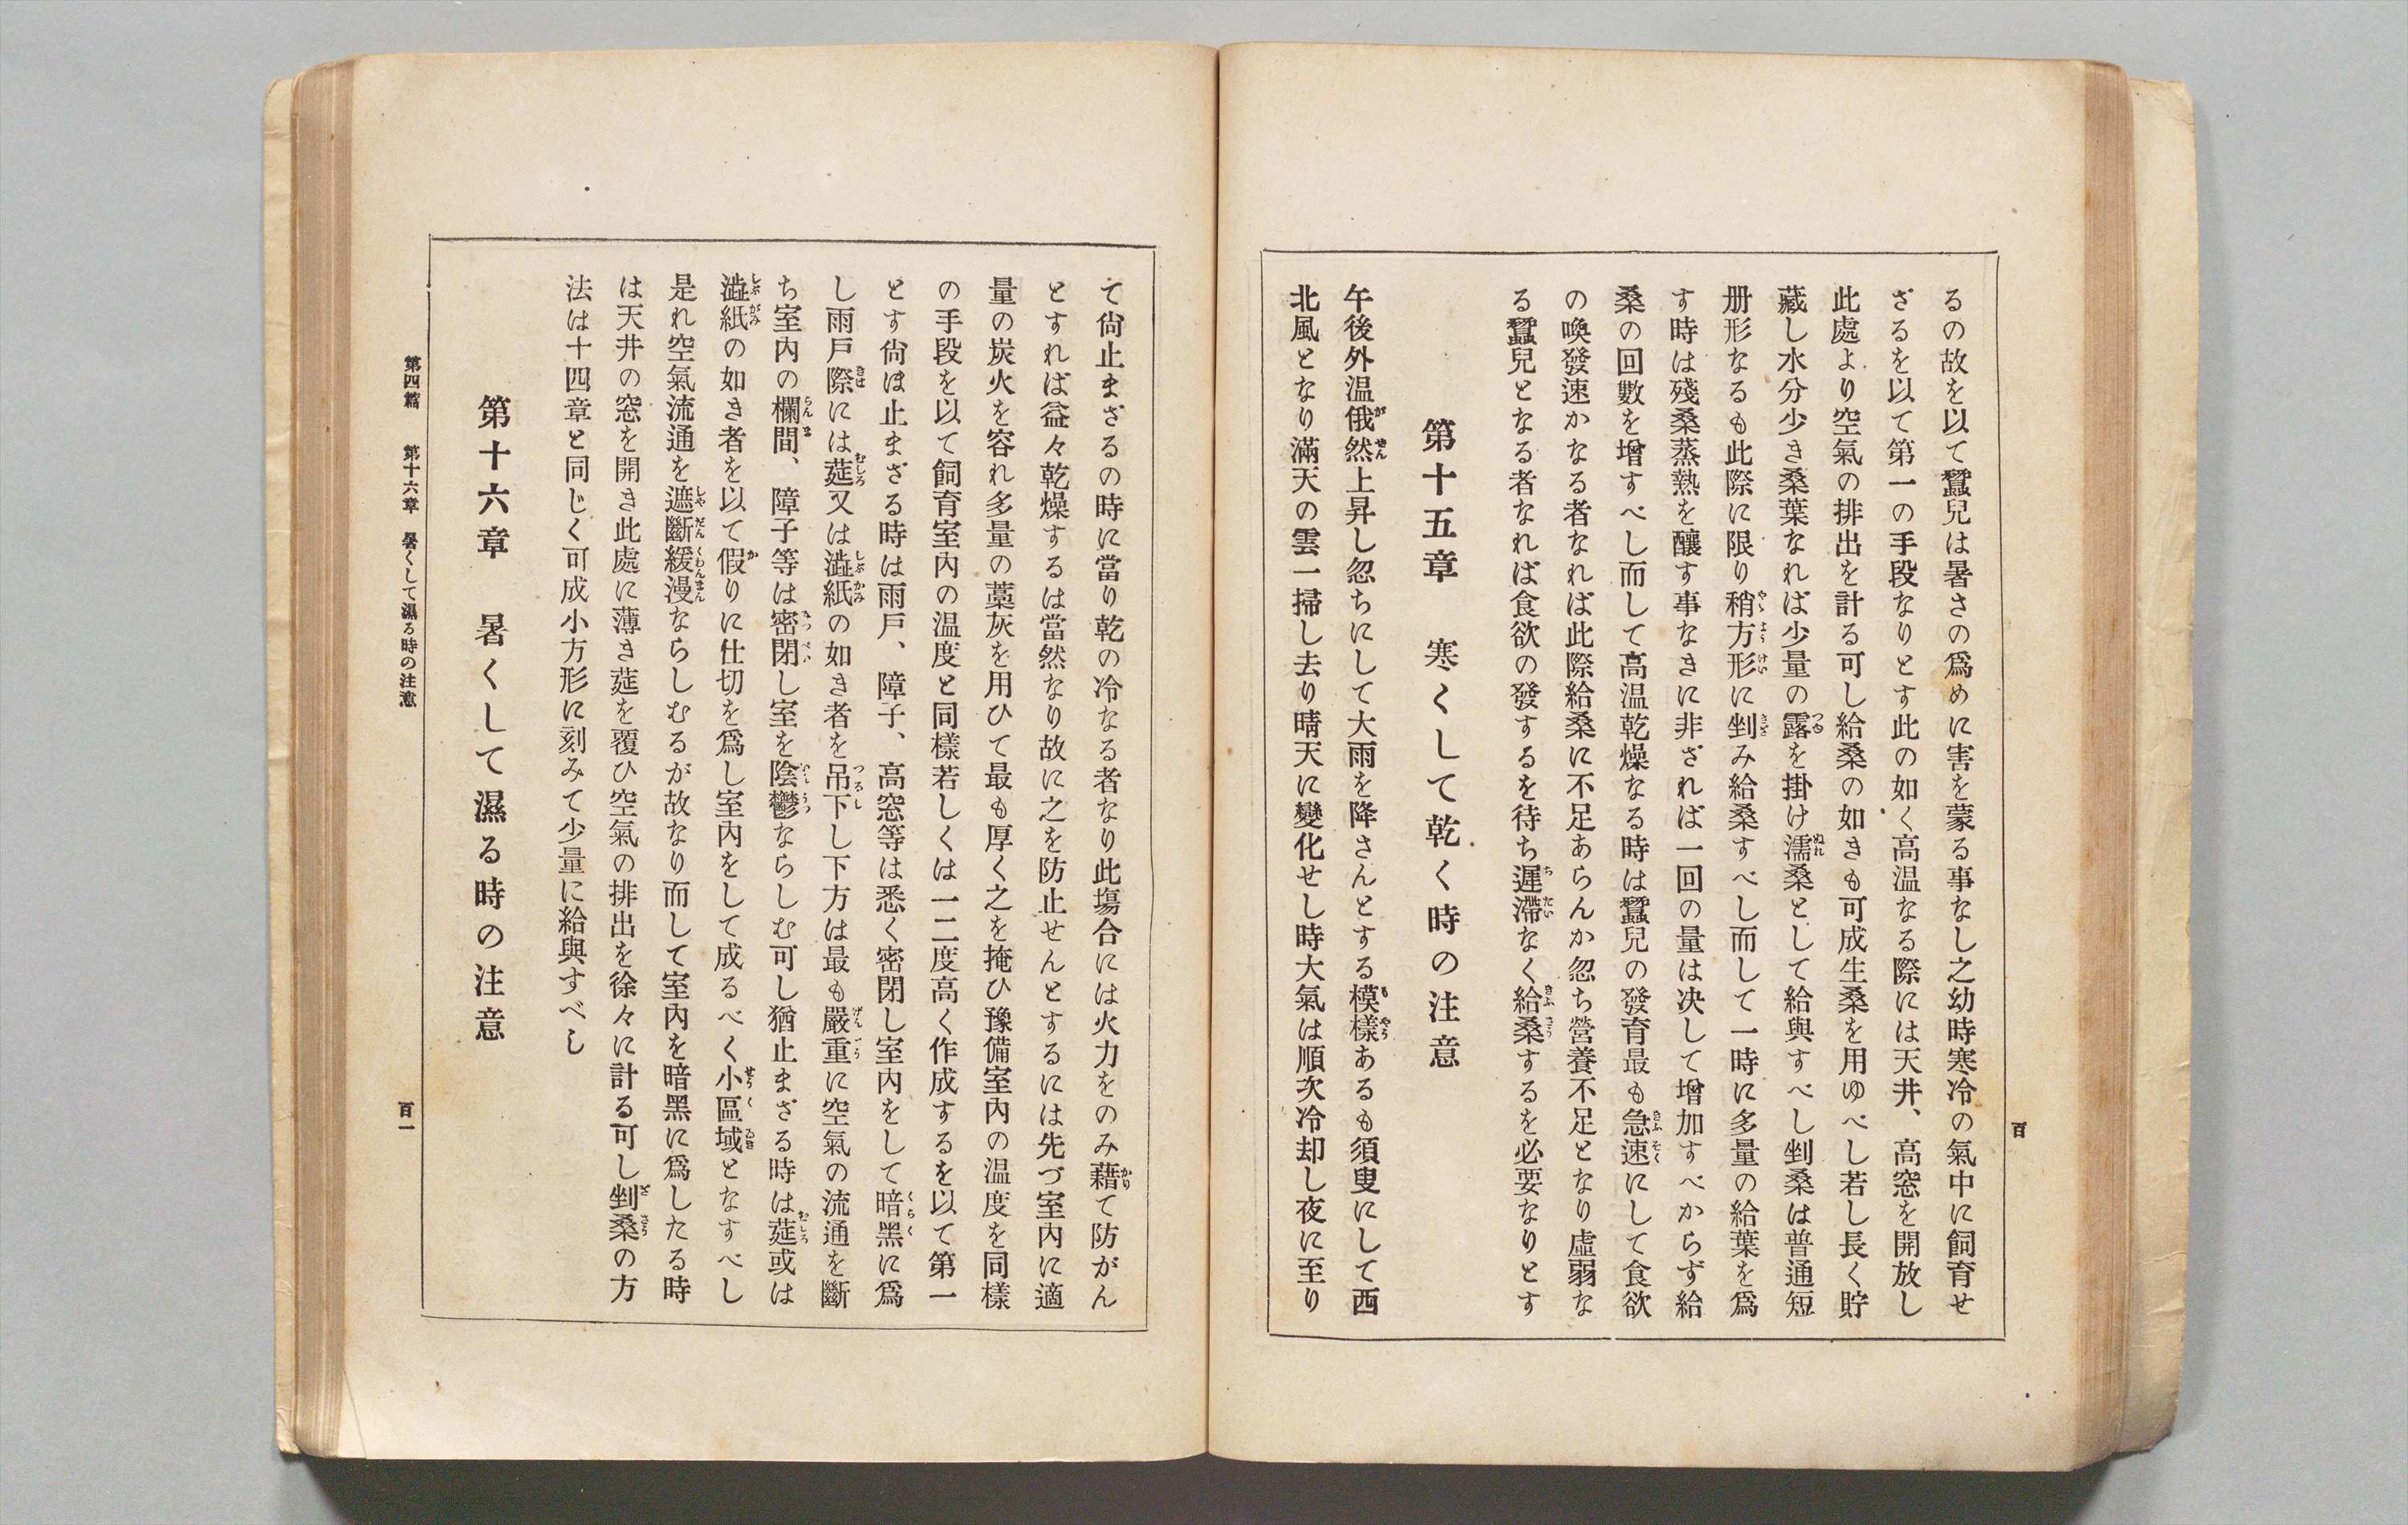 るの故を以て蠶兒は暑さの爲めに害を蒙る事なし之幼時寒冷の氣中に飼育せ
ざるを以て第一の手段なりとす此の如く高温なる際には天井、高窓を開放し
此處より空氣の排出を計る可し給桑の如きも可成生桑を用ゆべし若し長く貯
藏し水分少き桑葉なれば少量の露を掛け濡桑として給與すべし剉桑は普通短
册形なるも此際に限り稍方形に剉み給桑すべし而して一時に多量の給葉を爲
す時は殘桑蒸熱を釀す事なきに非ざれば一回の量は决して增加すべからず給
桑の回數を增すべし而して高温乾燥なる時は蠶兒の發育最も急速にして食欲
の喚發速かなる者なれば此際給桑に不足あらんか忽ち營養不足となり虛弱な
る蠶兒となる者なれば食欲の發するを待ち遲滯なく給桑するを必要なりとす
第十五章　寒くして乾く時の注意
午後外温俄然上昇し忽ちにして大雨を降さんとする模樣あるも須叟にして西
北風となり滿天の雲一掃し去り晴天に變化せし時大氣は順次冷却し夜に至り
百
て尙止まざるの時に當り乾の冷なる者なり此塲合には火力をのみ藉て防がん
とすれば益々乾燥するは當然なり故に之を防止せんとするには先づ室内に適
量の炭火を容れ多量の藁灰を用ひて最も厚く之を掩ひ豫備室内の温度を同樣
の手段を以て飼育室内の温度と同樣若しくは一二度高く作成するを以て第一
とす尙ほ止まざる時は雨戸、障子、高窓等は悉く密閉し室内をして暗黑に爲
し雨戸際には莚又は澁紙の如き者を吊下し下方は最も嚴重に空氣の流通を斷
ち室内の欄間、障子等は密閉し室を陰鬱ならしむ可し猶止まざる時は莚或は
澁紙の如き者を以て假りに仕切を爲し室内をして成るべく小區域となすべし
是れ空氣流通を遮斷緩漫ならしむるが故なり而して室内を暗黑に爲したる時
は天井の窓を開き此處に薄き莚を覆ひ空氣の排出を徐々に計る可し剉桑の方
法は十四章と同じく可成小方形に刻みて少量に給與すべし
第十六章　暑くして濕る時の注意
第四篇　第十六章　暑くして濕る時の注意
百一